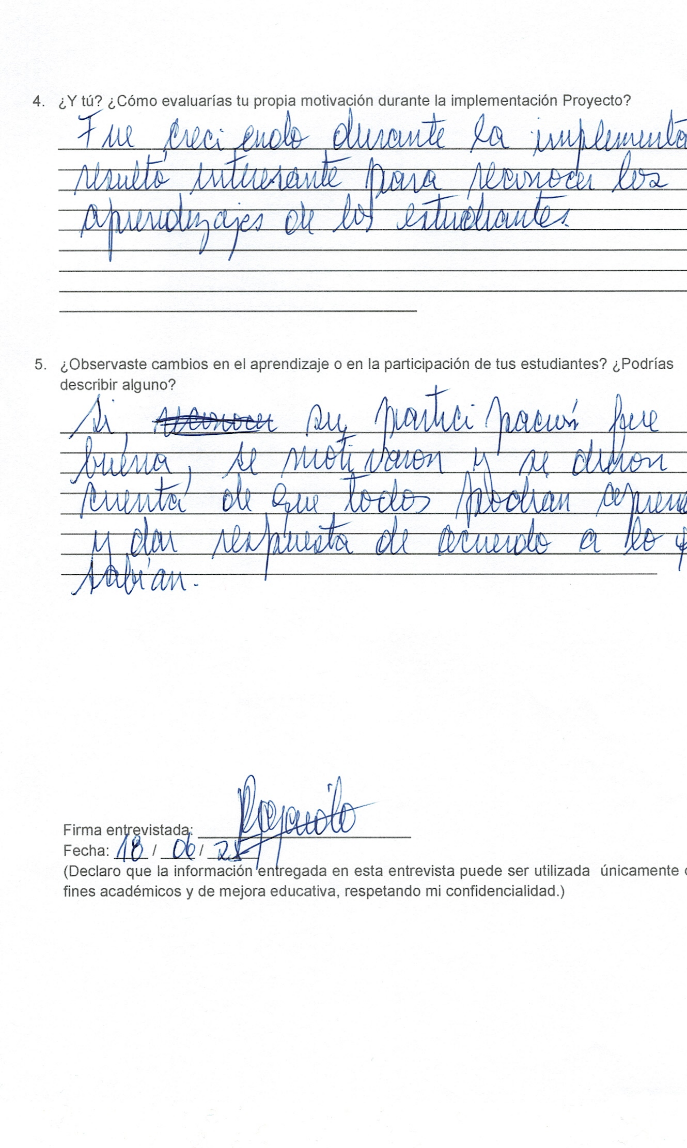 4. ¿Y tú? ¿Cómo evaluarías tu propia motivación durante la implementación Proyecto?
Fue creciendo durante la implementa
resultó interesante para reconocer los
aprendizajes de los estudiantes.
5. ¿Observaste cambios en el aprendizaje o en la participación de tus estudiantes? ¿Podrías
describir alguno?
Si, reconocer su participación fue
buena, se motivaron y se dieron
cuenta de que todos podían
y dar respuesta de acuerdo a lo q
sabían.
Firma entrevistada:
Fecha: 18 / 06 / 25
(Declaro que la información entregada en esta entrevista puede ser utilizada únicamente
fines académicos y de mejora educativa, respetando mi confidencialidad.)